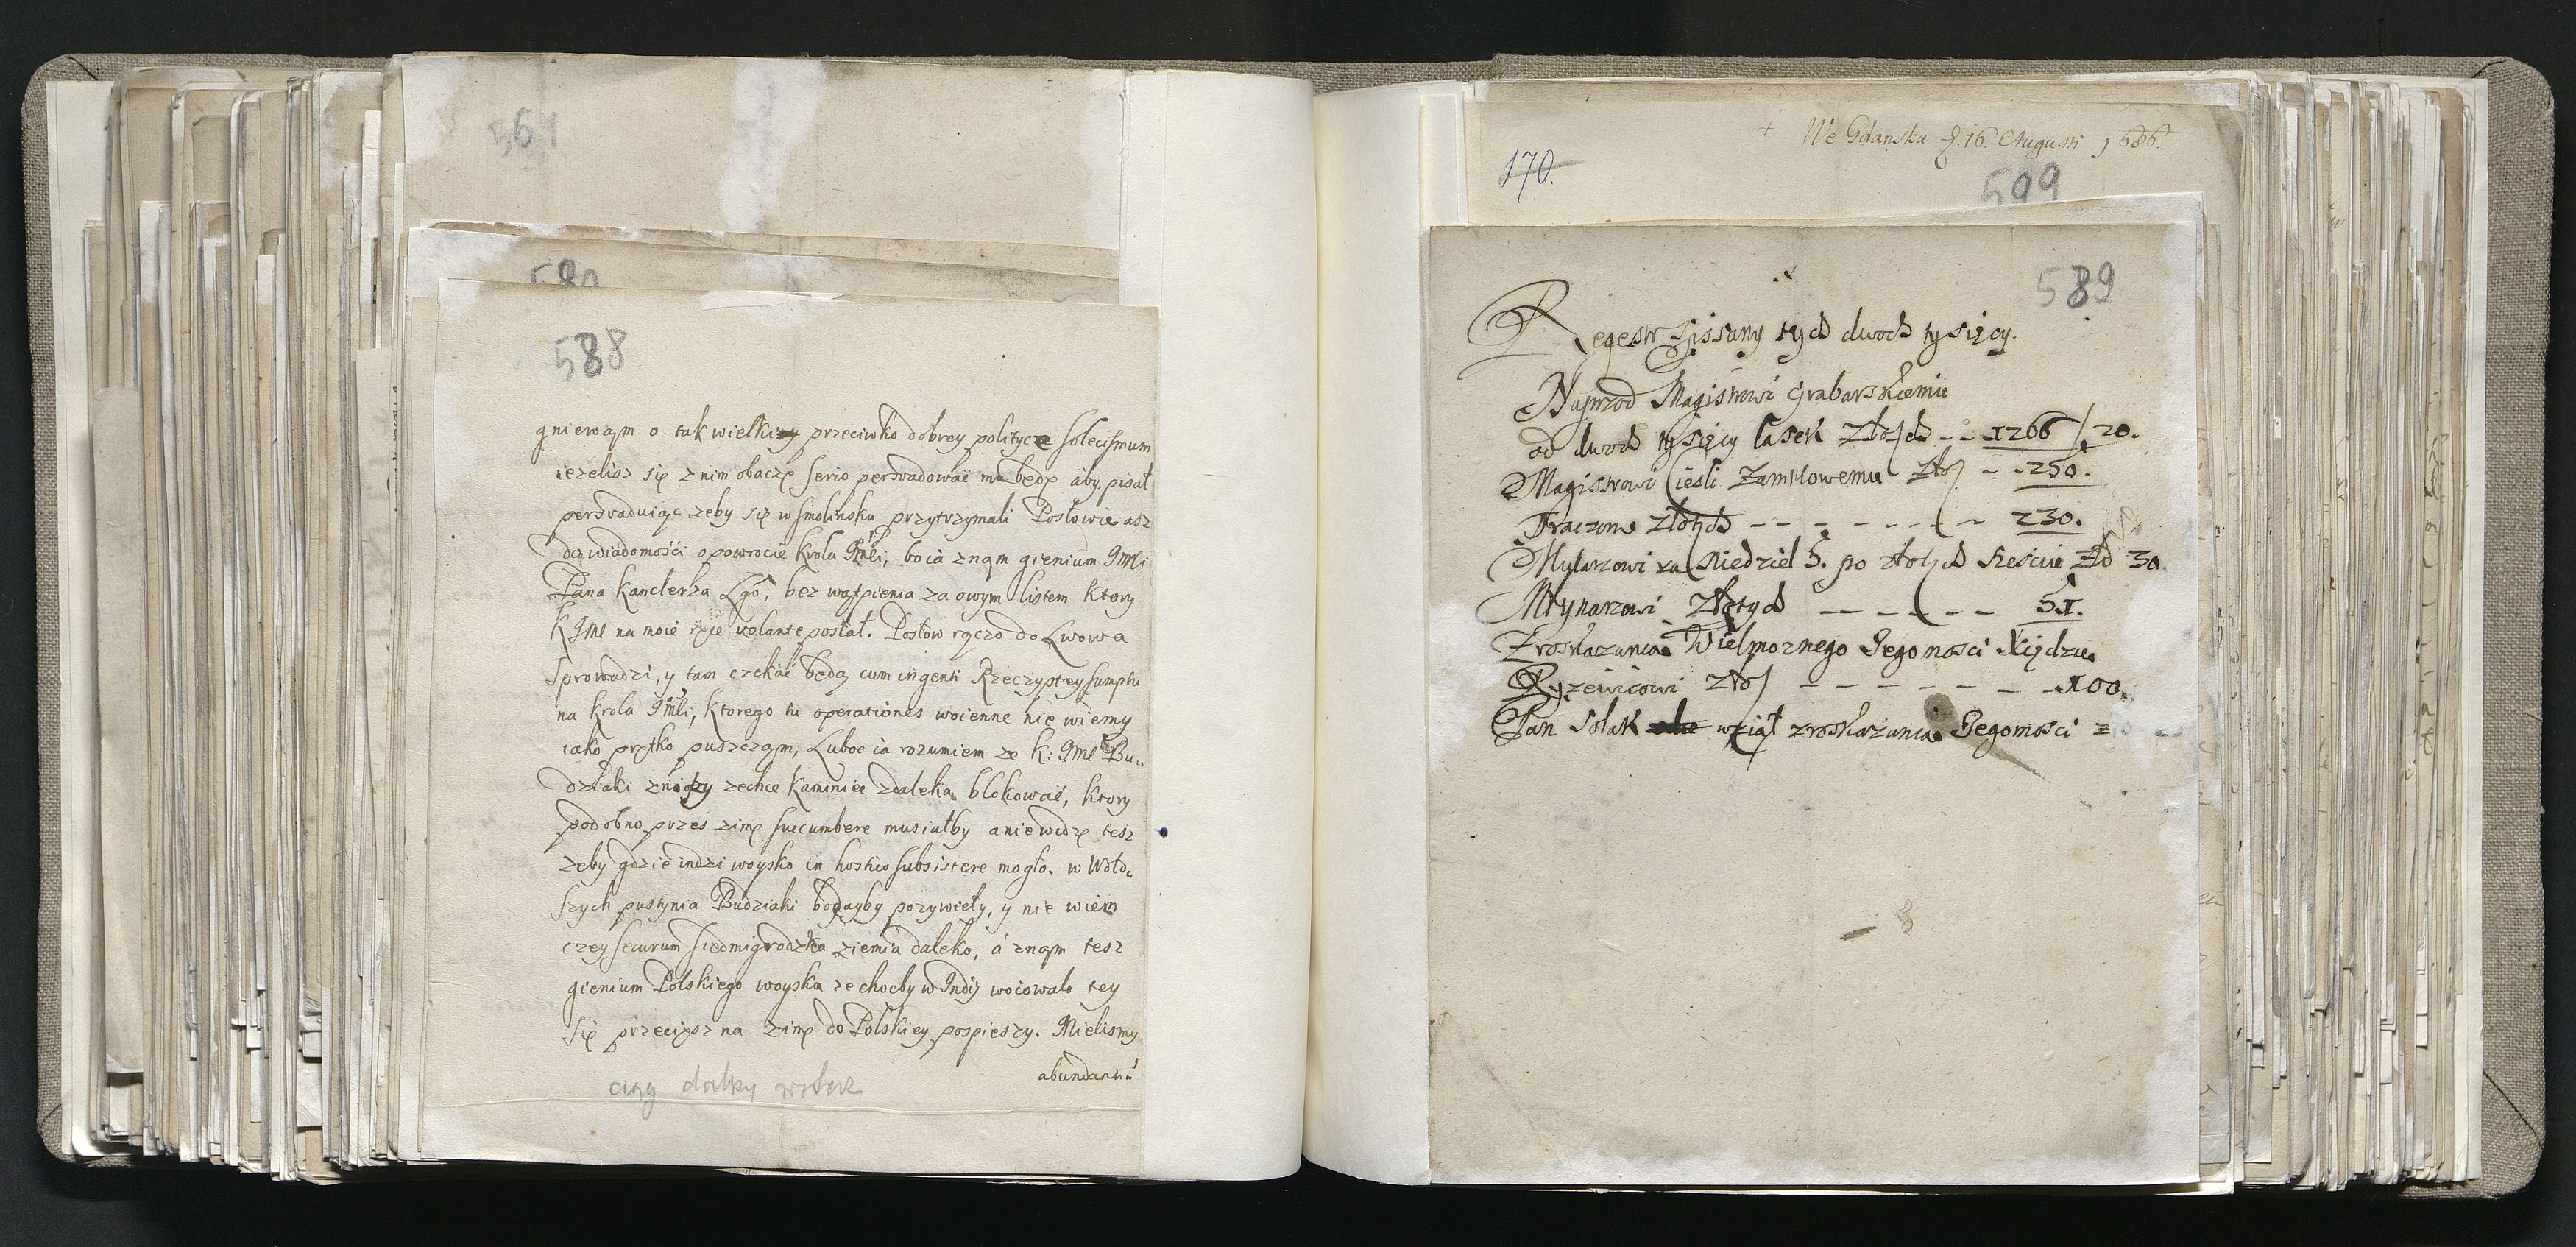 561
580
588
gniewam o tak wielkim przeciwko dobrey polityce solecismum
iezelisz się z nim obaczę serio perswadować mu będę aby pisał
perswaduiąc zeby się w Smolińsku przytrzymali Posłowie asz
do wiadomości o powrocie Krola JMści, bo ia znąm gienium JMści
Pana Kanclerza Lgo, bez wątpienia za owym listem ktory
K JMść na moie ręce volante posłał. Posłow ręczo do Lwowa
sprowadzi, y tam czekać będą cum ingenti Rzeczyptey sumptu
na Krola JMści, ktorego tu operationes woienne nie wiemy
iako prętko puszczą; Luboc ia rozumiem ze K: JMść Bu„
dziaki zechce Kaminiec zdaleka blokować, ktory
podobno przes zimę succumbere musiałby a nie widzę tesz
zeby gdzie indzi woysko in hostico subsistere mogło. w Woło„
szych pustynia Budziaki bodayby pozywieły, y nie wiem
czey securum siedmigrodzka ziemia daleko, á znąm tesz
gienium Polskiego woyska ze choćby w Indij woiowało tey
się przeciesz na zimę do Polskiey pospieszy. Mielismy
abundanti
ciąg dalszy
+ We Gdansku d. 16. Augusti 1686.
170.
599
589
Regestr spisany tych dwoch tysięcy.
Najprzod Magistrowi Grabarskiemu
od dwoch tysięcy lasek złotych -- 1266 / 20.
Magistrowi Ciesli Zamkowemu zło -- 250.
Traczom złotych ------ 230.
Mularzowi za Niedziel 5. po złotych szesciu zło 30.
Młynarzowi złotych ----- 51.
Z roskazania Wielmoznego Jegomosci Xiędzu
Ryzewicowi zło ------- 100.
Jan Solak wziął z roskazania Jegomosci z